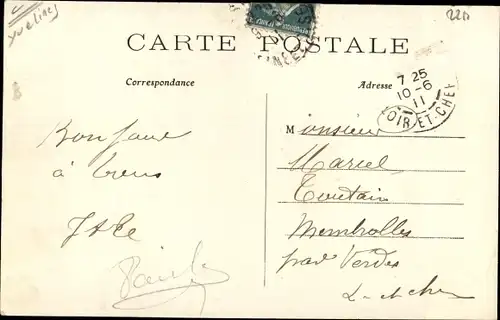 Yvelines
2211
CARTE POSTALE
Correspondance
Adresse
7 25
10-6
11
LOIR-ET-CHER
Bonjour
à tous
Monsieur
Marcel
Toutain
Membrolles
par Verdes
L-et-cher